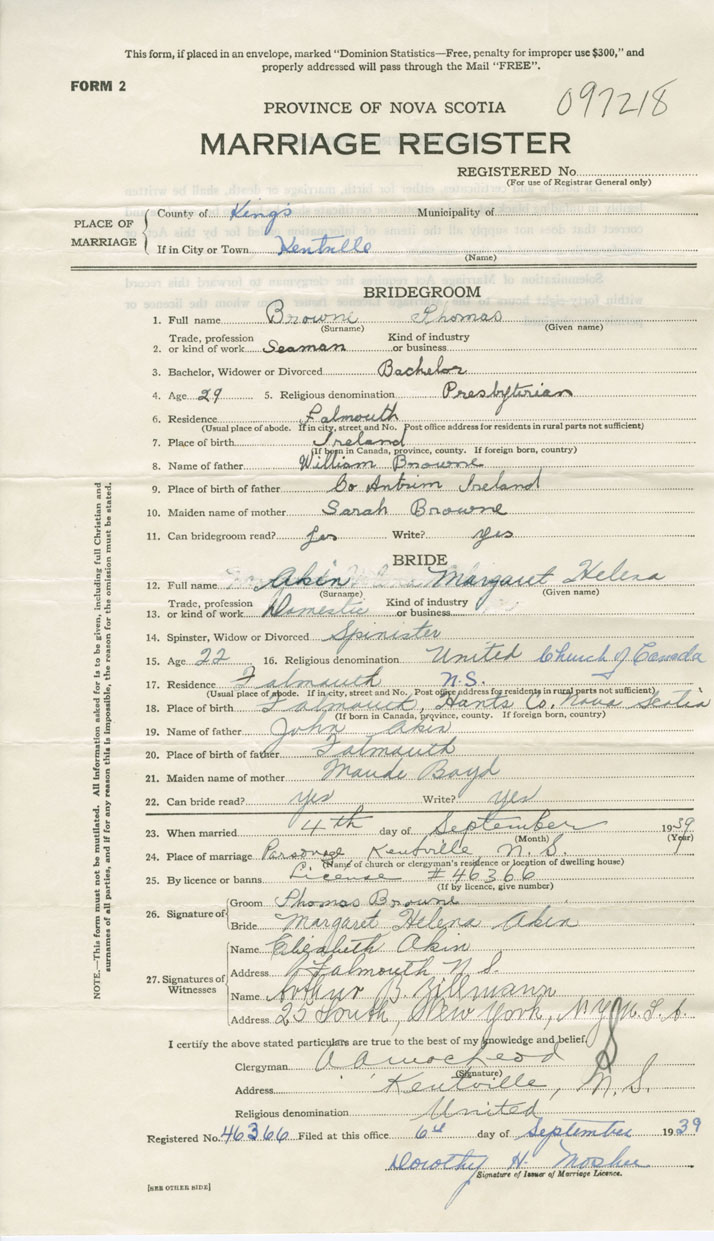 This form, if placed in an envelope, marked "Dominion Statistics—Free, penalty for improper use $300," and
properly addressed will pass through the Mail "FREE".
FORM 2
097218
PROVINCE OF NOVA SCOTIA
MARRIAGE REGISTER
REGISTERED No.
(For use of Registrar General only)
PLACE OF MARRIAGE
County of Kings Municipality of
If in City or Town Kentville
(Name)
BRIDEGROOM
1. Full name Browne Thomas
(Surname) (Given name)
2. Trade, profession or kind of work Seaman Kind of industry or business
3. Bachelor, Widower or Divorced Bachelor
4. Age 29 5. Religious denomination Presbyterian
6. Residence Falmouth
(Usual place of abode. If in city, street and No. Post office address for residents in rural parts not sufficient)
7. Place of birth Ireland
(If born in Canada, province, county. If foreign born, country)
8. Name of father William Browne
9. Place of birth of father Co Antrim Ireland
10. Maiden name of mother Sarah Browne
11. Can bridegroom read? yes Write? yes
BRIDE
12. Full name Akin Margaret Helena
(Surname) (Given name)
13. Trade, profession or kind of work Domestic Kind of industry or business
14. Spinster, Widow or Divorced Spinister
15. Age 22 16. Religious denomination United Church of Canada
17. Residence Falmouth N.S.
(Usual place of abode. If in city, street and No. Post office address for residents in rural parts not sufficient)
18. Place of birth Falmouth, Hants Co. Nova Scotia
(If born in Canada, province, county. If foreign born, country)
19. Name of father John Akin
20. Place of birth of father Falmouth
21. Maiden name of mother Maude Boyd
22. Can bride read? yes Write? yes
23. When married 4th day of September 1939
(Month) (Year)
24. Place of marriage Parsonage Kentville N.S.
(Name of church or clergyman's residence or location of dwelling house)
25. By licence or banns License #46366
(If by licence, give number)
26. Signature of
Groom Thomas Browne
Bride Margaret Helena Akin
27. Signatures of Witnesses
Name Elizabeth Akin
Address Falmouth N.S.
Name Arthur B Zillmann
Address 25 South, New York, N.Y. U.S.A.
I certify the above stated particulars are true to the best of my knowledge and belief.
Clergyman A A MacLeod
(Signature)
Address Kentville, N.S.
Religious denomination United
Registered No. 46366 Filed at this office 6th day of September 1939
Dorothy H. Mosher
Signature of Issuer of Marriage Licence.
[SEE OTHER SIDE]
NOTE.—This form must not be mutilated. All information asked for is to be given, including full Christian and
surnames of all parties, and if for any reason this is impossible, the reason for the omission must be stated.